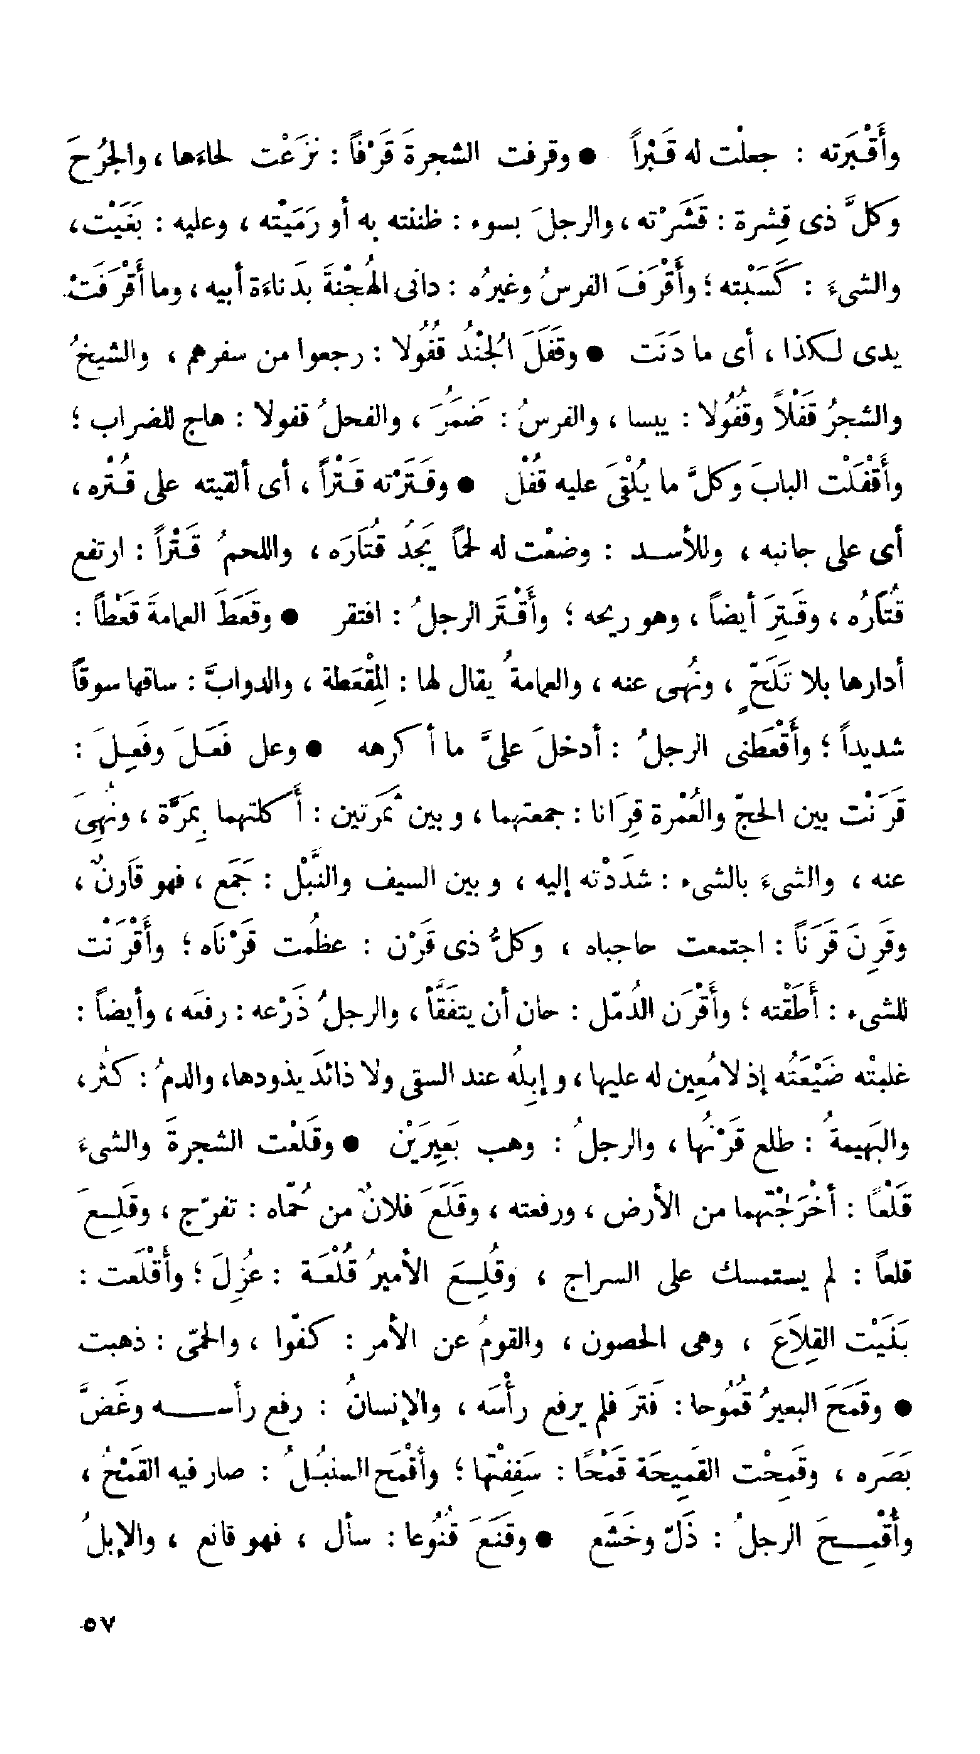 وأَقْبَرته : جعلْت له قَبْراً ● وقرفت الشجرة قَرْفاً : نزَعْت لحاءها ، والجُرْحَ
وكلَّ ذى قِشرة : قَشَرْته ، والرجلَ بسوء : ظننته به أو رَمَيْته ، وعليه : بَغَيْت ،
والشىءَ : كَسَبْته ؛ وأَقْرَفَ الفرسُ وغيرُه : دانى الهُجْنةَ بدناءة أبيه ، وما أَقْرَفَتْ
يدى لكذا ، أى ما دَنَت ● وقَفَلَ الجُنْدُ قُفُولا : رجعوا من سفرهم ، والشيخُ
والشجرُ قَفْلاً وقُفُولا : يبسا ، والفرسُ : ضَمُرَ ، والفحلُ قفولا : هاج للضراب ؛
وأَقْفَلْت البابَ وكلَّ ما يُلْقَى عليه قُفْل ● وقَتَرْته قَتْراً ، أى ألقيته على قُتْره ،
أى على جانبه ، وللأسد : وضعْت له لحماً يَجِدُ قُتَارَه ، واللحمُ قَتْراً : ارتفع
قُتَارُه ، وقَتِرَ أيضاً ، وهو ريحه ؛ وأَقْتَر الرجلُ : افتقر ● وقَعَطَ العمامةَ قَعْطاً :
أدارها بلا تَلَحٍّ ، ونُهِى عنه ، والعمامةُ يقال لها : المِقْعَطة ، والدوابَّ : ساقها سوقاً
شديداً ؛ وأَقْعَطنى الرجلُ : أدخلَ علىَّ ما أكرهه ● وعلى فَعَلَ وفَعِلَ :
قَرَنْت بين الحجّ والعُمْرة قِرَانا : جمعتهما ، وبين تَمْرتين : أكلتهما بِمَرَّة ، ونُهِىَ
عنه ، والشىءَ بالشىء : شدَدْته إليه ، وبين السيف والنَّبْل : جَمَع ، فهو قَارنٌ ،
وقَرِنَ قَرَناً : اجتمعت حاجباه ، وكلُّ ذى قَرْن : عظُمت قَرْنَاه ؛ وأَقْرَنْت
للشىء : أَطَقْته ؛ وأَقْرَن الدُمّل : حان أن يتفَقَّأ ، والرجلُ ذَرْعه : رفعَه ، وأيضاً :
غلبتْه ضَيْعَتُه إذ لا مُعِين له عليها ، وإبلُه عند السقى ولا ذائدَ يذودها ، والدمُ : كثُر ،
والبَهيمةُ : طلع قَرْنُها ، والرجلُ : وهب بَعِيرَيْن ● وقلَعْت الشجرةَ والشىءَ
قَلْعًا : أَخْرَجْتهما من الأرض ، ورفعته ، وقَلَعَ فلانٌ من حُمّاه : تفرّج ، وقَلِعَ
قلعاً : لم يستمسك على السراج ، وقُلِعَ الأميرُ قُلْعَة : عُزِلَ ؛ وأَقْلَعت :
بَنَيْت القِلاَعَ ، وهى الحصون ، والقومُ عن الأمر : كفّوا ، والحمّى : ذهبت
● وقَمَحَ البعيرُ قُمُوحا : فَتَر فلم يرفع رأْسَه ، والإنسانُ : رفع رأسه وغَضَّ
بَصَره ، وقَمِحْت القَمِيحَة قَمْحًا : سَفِفْتها ؛ وأَقْمَح السنبُلُ : صار فيه القَمْحُ ،
وأُقْمِحَ الرجلُ : ذَلّ وخَشَع ● وقَنَعَ قُنُوعا : سأل ، فهو قانع ، والإبلُ
٥٧